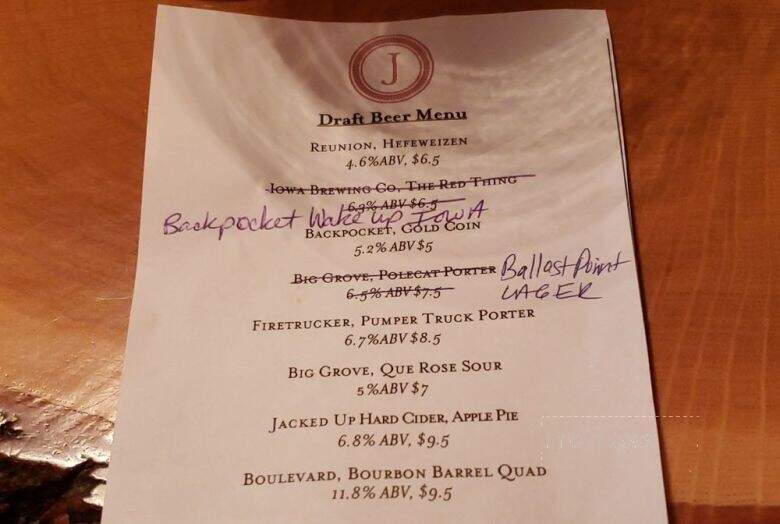 J
Draft Beer Menu
Reunion, Hefeweizen
4.6%ABV, $6.5
Iowa Brewing Co, The Red Thing
6.9% ABV $6.5
Backpocket Wake up Iowa
Backpocket, Gold Coin
5.2% ABV $5
Big Grove, Polecat Porter Ballast Point
6.5% ABV $7.5 LAGER
Firetrucker, Pumper Truck Porter
6.7%ABV $8.5
Big Grove, Que Rose Sour
5%ABV $7
Jacked Up Hard Cider, Apple Pie
6.8% ABV, $9.5
Boulevard, Bourbon Barrel Quad
11.8% ABV, $9.5